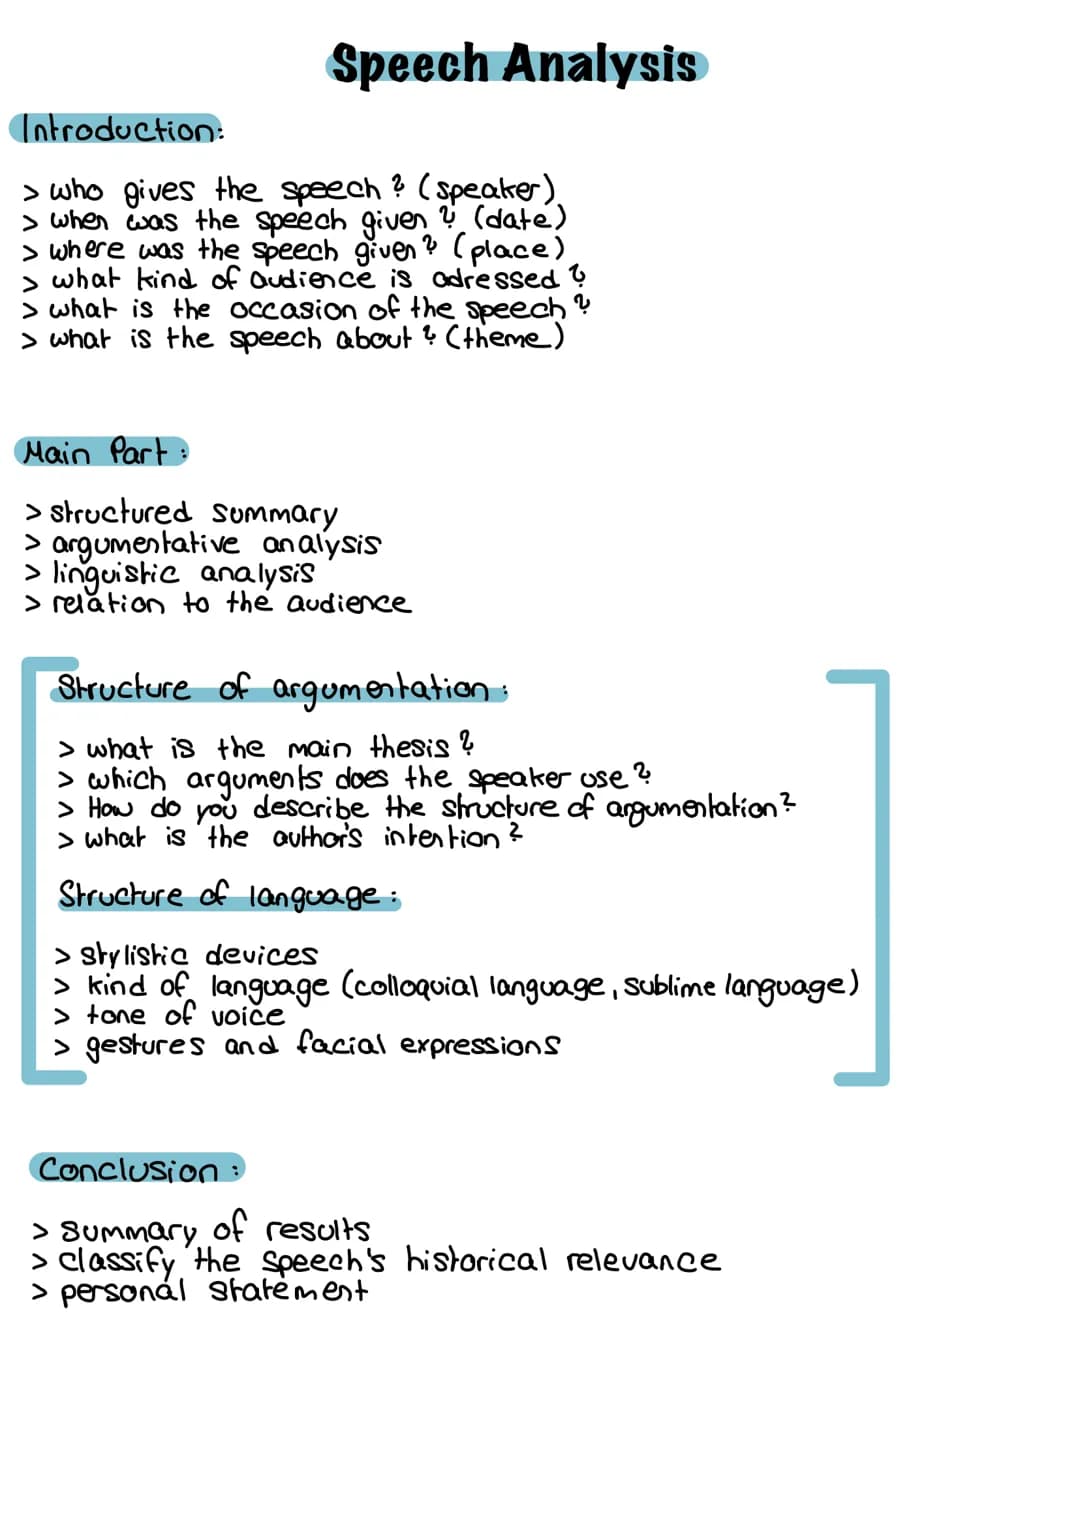 Speech Analysis
Introduction:
> who gives the speech? (speaker)
> when was the speech given? (date)
> where was the speech given? (place)
> what kind of audience is adressed?
> what is the occasion of the speech?
> what is the speech about? (theme)
Main Part:
> structured summary
> argumentative analysis
> linguistic analysis
> relation to the audience
Structure of argumentation:
> what is the main thesis?
> which arguments does the speaker use?
> How do you describe the structure of argumentation?
> what is the author's intention?
Structure of language:
> stylistic devices
> kind of language (colloquial language, sublime language)
> tone of voice
> gestures and facial expressions
Conclusion:
> summary of results
> classify the speech's historical relevance
> personal statement